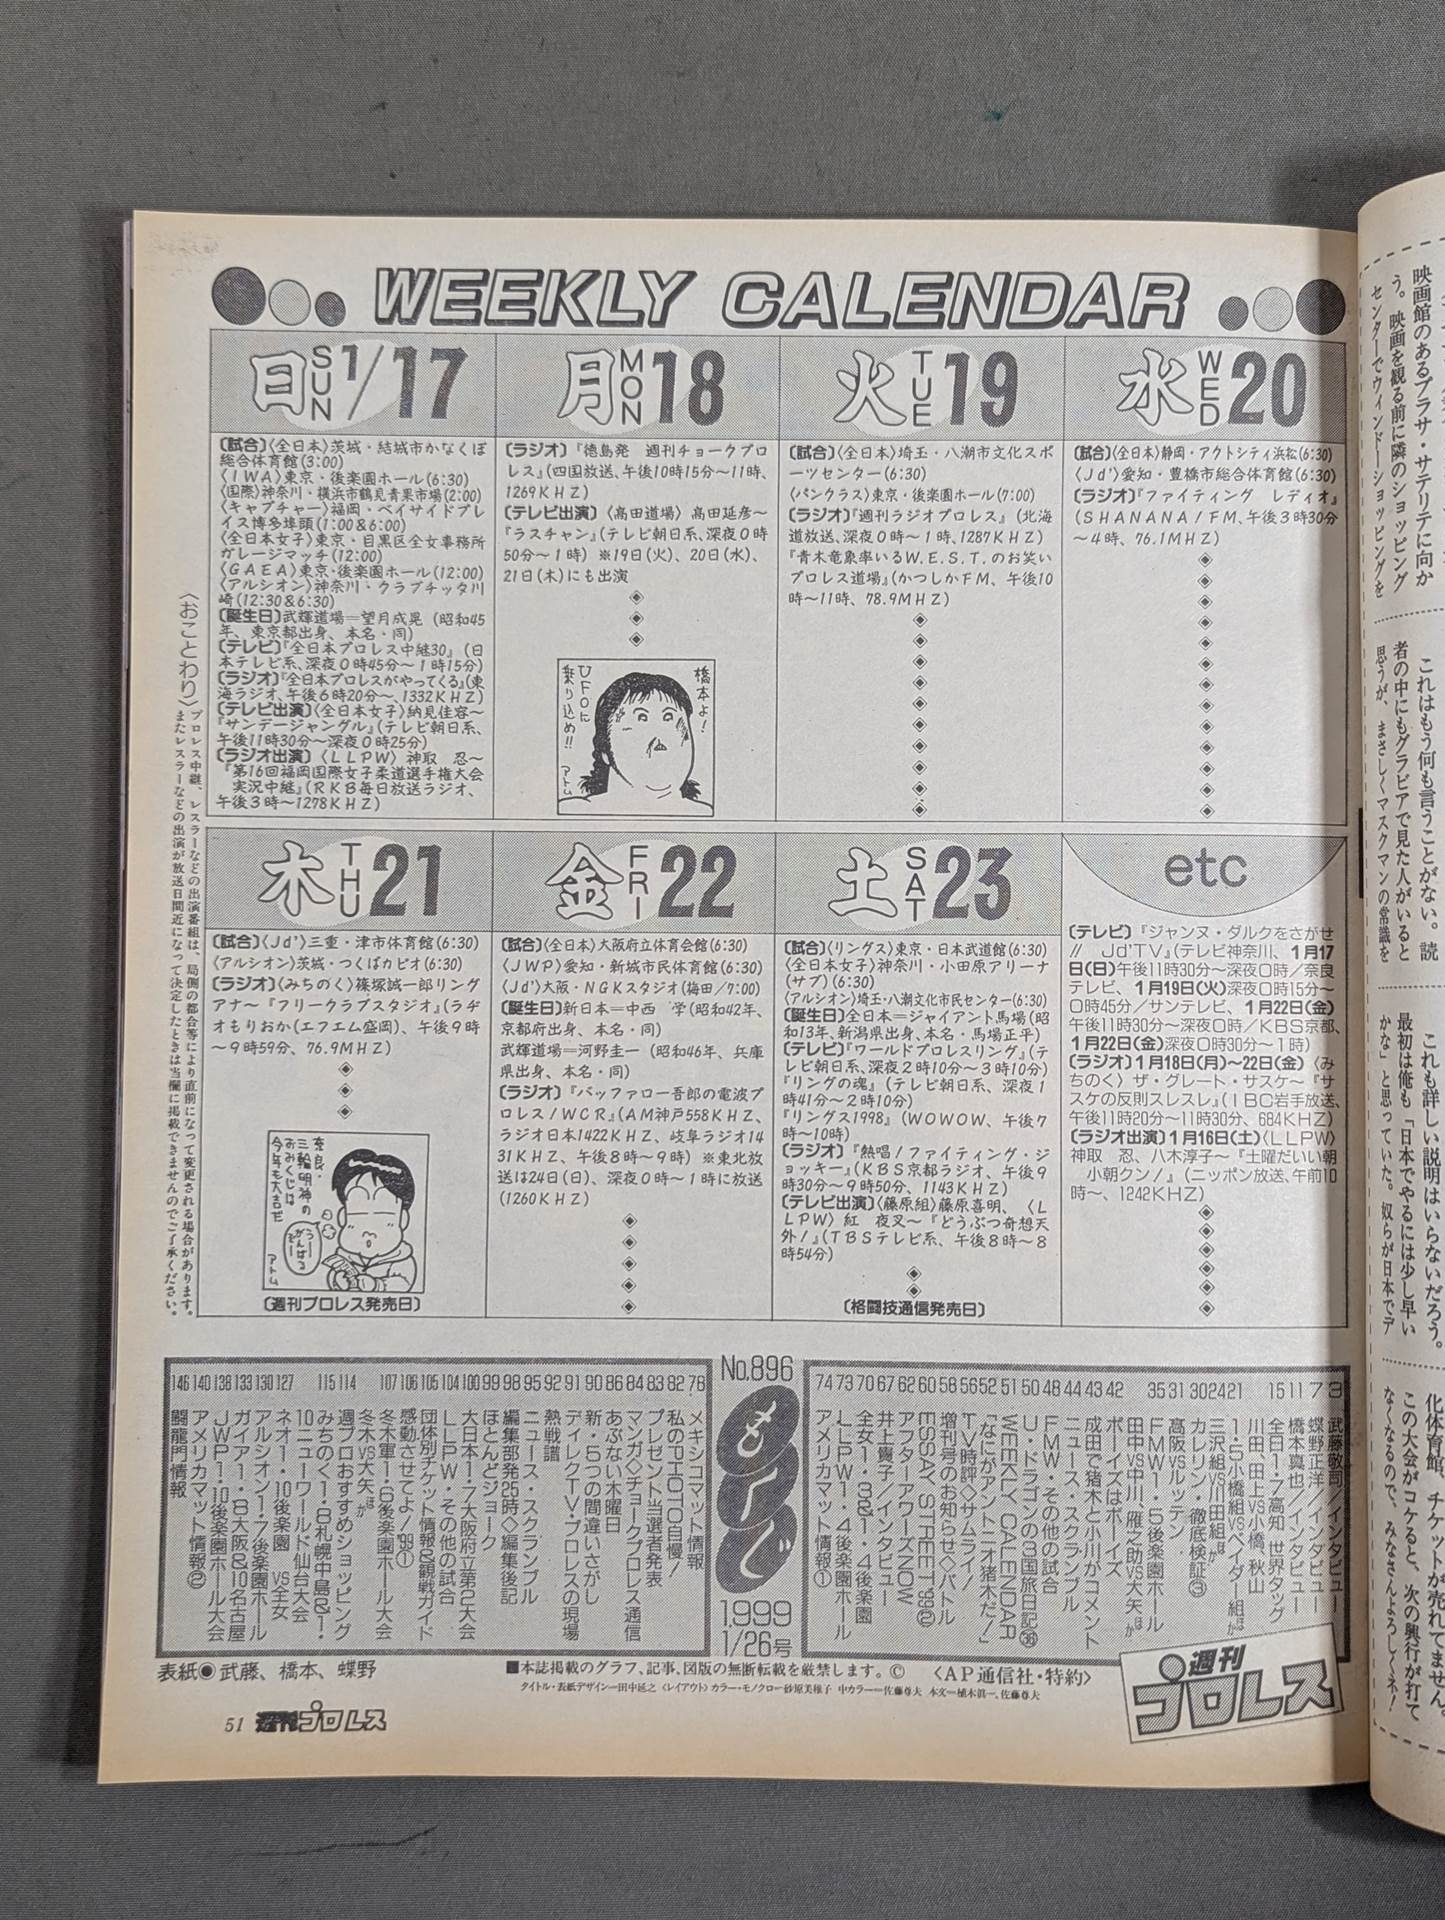 WEEKLY CALENDAR
日 SUN 1/17
〔試合〕〈全日本〉茨城・結城市かなくぼ
総合体育館(3:00)
〈IWA〉東京・後楽園ホール(6:30)
〈国際〉神奈川・横浜市鶴見青果市場(2:00)
〈キャプチャー〉福岡・ベイサイドプレ
イス博多埠頭(1:00&6:00)
〈全日本女子〉東京・目黒区全女事務所
ガレージマッチ(12:00)
〈GAEA〉東京・後楽園ホール(12:00)
〈アルシオン〉神奈川・クラブチッタ川
崎(12:30&6:30)
〔誕生日〕武輝道場=望月成晃(昭和45
年、東京都出身、本名・同)
〔テレビ〕『全日本プロレス中継30』(日
本テレビ系、深夜0時45分〜1時15分)
〔ラジオ〕『全日本プロレスがやってくる』(東
海ラジオ、午後6時20分〜、1332KHZ)
〔テレビ出演〕〈全日本女子〉納見佳容〜
『サンデージャングル』(テレビ朝日系、
午後11時30分〜深夜0時25分)
〔ラジオ出演〕〈LLPW〉神取 忍〜
『第16回福岡国際女子柔道選手権大会
実況中継』(RKB毎日放送ラジオ、
午後3時〜1278KHZ)
月 MON 18
〔ラジオ〕『徳島発 週刊チョークプロ
レス』(四国放送、午後10時15分〜11時、
1269KHZ)
〔テレビ出演〕〈高田道場〉高田延彦〜
『ラスチャン』(テレビ朝日系、深夜0時
50分〜1時)※19日(火)、20日(水)、
21日(木)にも出演
橋本よ!
UFOに
乗り込め!!
アトム
火 TUE 19
〔試合〕〈全日本〉埼玉・八潮市文化スポ
ーツセンター(6:30)
〈パンクラス〉東京・後楽園ホール(7:00)
〔ラジオ〕『週刊ラジオプロレス』(北海
道放送、深夜0時〜1時、1287KHZ)
『青木竜象率いるW.E.S.T.のお笑い
プロレス道場』(かつしかFM、午後10
時〜11時、78.9MHZ)
水 WED 20
〔試合〕〈全日本〉静岡・アクトシティ浜松(6:30)
〈Jd'〉愛知・豊橋市総合体育館(6:30)
〔ラジオ〕『ファイティング レディオ』
(SHANANA!FM、午後3時30分
〜4時、76.1MHZ)
木 THU 21
〔試合〕〈Jd'〉三重・津市体育館(6:30)
〈アルシオン〉茨城・つくばカピオ(6:30)
〔ラジオ〕〈みちのく〉篠塚誠一郎リング
アナ〜『フリークラブスタジオ』(ラヂ
オもりおか(エフエム盛岡)、午後9時
〜9時59分、76.9MHZ)
奈良・
三輪明神の
おみくじは
今年も大吉だ
うー
がんばる
ぞー
アトム
〔週刊プロレス発売日〕
金 FRI 22
〔試合〕〈全日本〉大阪府立体育会館(6:30)
〈JWP〉愛知・新城市民体育館(6:30)
〈Jd'〉大阪・NGKスタジオ(梅田/7:00)
〔誕生日〕新日本=中西 学(昭和42年、
京都府出身、本名・同)
武輝道場=河野圭一(昭和46年、兵庫
県出身、本名・同)
〔ラジオ〕『バッファロー吾郎の電波プ
ロレス!WCR』(AM神戸558KHZ、
ラジオ日本1422KHZ、岐阜ラジオ14
31KHZ、午後8時〜9時)※東北放
送は24日(日)、深夜0時〜1時に放送
(1260KHZ)
土 SAT 23
〔試合〕〈リングス〉東京・日本武道館(6:30)
〈全日本女子〉神奈川・小田原アリーナ
(サブ)(6:30)
〈アルシオン〉埼玉・八潮文化市民センター(6:30)
〔誕生日〕全日本=ジャイアント馬場(昭
和13年、新潟県出身、本名・馬場正平)
〔テレビ〕『ワールドプロレスリング』(テ
レビ朝日系、深夜2時10分〜3時10分)
『リングの魂』(テレビ朝日系、深夜1
時41分〜2時10分)
『リングス1998』(WOWOW、午後7
時〜10時)
〔ラジオ〕『熱唱!ファイティング・ジ
ョッキー』(KBS京都ラジオ、午後9
時30分〜9時50分、1143KHZ)
〔テレビ出演〕〈藤原組〉藤原喜明、〈L
LPW〉紅 夜叉〜『どうぶつ奇想天
外!』(TBSテレビ系、午後8時〜8
時54分)
〔格闘技通信発売日〕
etc
〔テレビ〕『ジャンヌ・ダルクをさがせ
!! Jd'TV』(テレビ神奈川、1月17
日(日)午後11時30分〜深夜0時/奈良
テレビ、1月19日(火)深夜0時15分〜
0時45分/サンテレビ、1月22日(金)
午後11時30分〜深夜0時/KBS京都、
1月22日(金)深夜0時30分〜1時)
〔ラジオ〕1月18日(月)〜22日(金)〈み
ちのく〉ザ・グレート・サスケ〜『サ
スケの反則スレスレ』(IBC岩手放送、
午後11時20分〜11時30分、684KHZ)
〔ラジオ出演〕1月16日(土)〈LLPW〉
神取 忍、八木淳子〜『土曜だいい朝
小朝クン!』(ニッポン放送、午前10
時〜、1242KHZ)
〈おことわり〉プロレス中継、レスラーなどの出演番組は、局側の都合等により直前になって変更される場合があります。
またレスラーなどの出演が放送日間近になって決定したときは当欄に掲載できませんのでご了承ください。
No.896
もくじ
1999
1/26号
3 武藤敬司//インタビュー
7 蝶野正洋//インタビュー
11 橋本真也/インタビュー
15 全日1・7高知 世界タッグ
川田、田上VS小橋、秋山
21 1・5小橋組VSベイダー組ほか
24 三沢組VS川田組ほか
30 カレリン・徹底検証③
31 高阪VSルッテン
35 FMW1・5後楽園ホール
田中VS中川、雁之助VS大矢ほか
42 ボーイズはボーイズ
43 成田で猪木と小川がコメント
44 ニュース・スクランブル
48 FMW・その他の試合
50 U・ドラゴンの3国旅日記㊱
51 WEEKLY CALENDAR
52 「なにがアントニオ猪木だ!」
56 TV時評◇サムライ!
58 増刊号のお知らせ◇バトル
60 ESSAY STREET'99②
62 アフターアワーズNOW
67 井上貴子/インタビュー
70 全女1・3&1・4後楽園
73 LLPW1・4後楽園ホール
74 アメリカマット情報①
76 メキシコマット情報
82 私のPHOTO自慢!
83 プレゼント当選者発表
84 マンガ◇チョークプロレス通信
86 あぶない木曜日
90 新・5つの間違いさがし
91 ディレクTV・プロレスの現場
92 熱戦譜
95 ニュース・スクランブル
98 編集部発25時◇編集後記
99 ほとんどジョーク
100 大日本1・7大阪府立第2大会
104 LLPW・その他の試合
105 団体別チケット情報&観戦ガイド
106 感動させてよ!'99①
107 冬木軍1・6後楽園ホール大会
冬木VS大矢ほか
114 週プロおすすめショッピング
115 みちのく1・8札幌中島&1・
10ニューワールド仙台大会
127 ネオ1・10後楽園 VS全女
130 アルシオン1・7後楽園ホール
133 ガイア1・8大阪&10名古屋
138 JWP1・10後楽園ホール大会
140 アメリカマット情報②
146 闘龍門情報
表紙●武藤、橋本、蝶野
■本誌掲載のグラフ、記事、図版の無断転載を厳禁します。© 〈AP通信社・特約〉
タイトル・表紙デザイン=田中延之〈レイアウト〉カラー・モノクロ=砂原美稚子 中カラー=佐藤尊夫 本文=植木眞一、佐藤尊夫
週刊プロレス
51 週刊プロレス
映画館のあるプラサ・サテリテに向か
う。映画を観る前に隣のショッピング
センターでウィンドーショッピングを
これはもう何も言うことがない。読
者の中にもグラビアで見た人がいると
思うが、まさしくマスクマンの常識を
これも詳しい説明はいらないだろう。
最初は俺も「日本でやるには少し早い
かな」と思っていた。奴らが日本でデ
化体育館、チケットが売れてません。
この大会がコケると、次の興行が打て
なくなるので、みなさんよろしくネ!